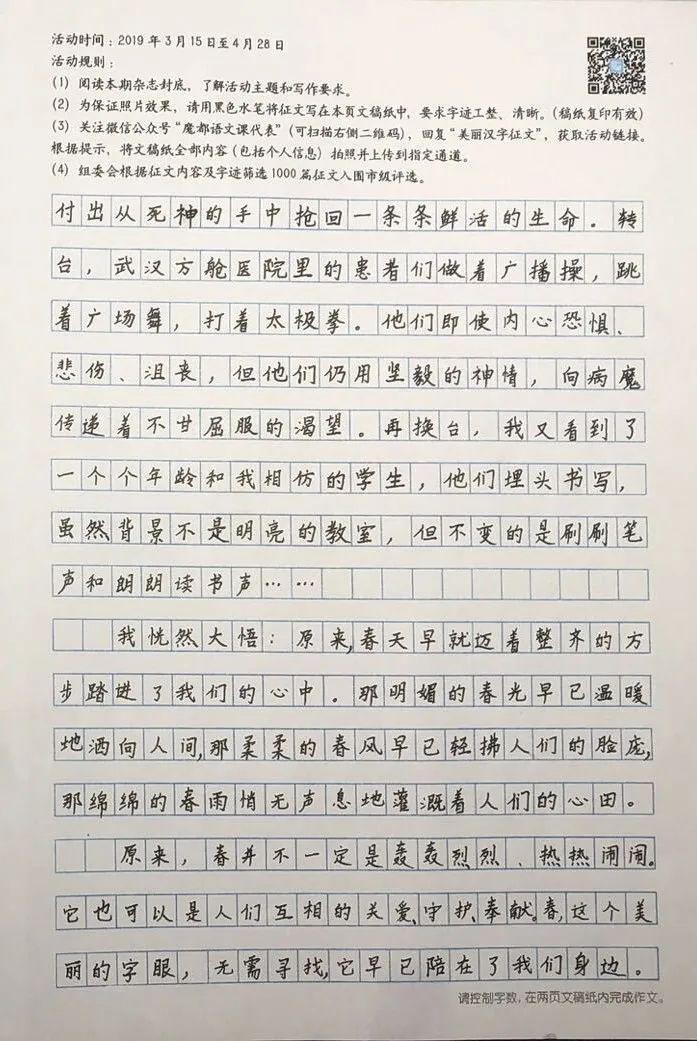 活动时间：2019年3月15日至4月28日
活动规则：
(1) 阅读本期杂志封底，了解活动主题和写作要求。
(2) 为保证照片效果，请用黑色水笔将征文写在本页文稿纸中，要求字迹工整、清晰。（稿纸复印有效）
(3) 关注微信公众号“魔都语文课代表”（可扫描右侧二维码），回复“美丽汉字征文”，获取活动链接。
根据提示，将文稿纸全部内容（包括个人信息）拍照并上传到指定通道。
(4) 组委会根据征文内容及字迹筛选1000篇征文入围市级评选。
付出从死神的手中抢回一条条鲜活的生命。转
台，武汉方舱医院里的患者们做着广播操，跳
着广场舞，打着太极拳。他们即使内心恐惧、
悲伤、沮丧，但他们仍用坚毅的神情，向病魔
传递着不甘屈服的渴望。再换台，我又看到了
一个个年龄和我相仿的学生，他们埋头书写，
虽然背景不是明亮的教室，但不变的是刷刷笔
声和朗朗读书声……
我恍然大悟：原来，春天早就迈着整齐的方
步踏进了我们的心中。那明媚的春光早已温暖
地洒向人间，那柔柔的春风早已轻拂人们的脸庞，
那绵绵的春雨悄无声息地灌溉着人们的心田。
原来，春并不一定是轰轰烈烈、热热闹闹。
它也可以是人们互相的关爱、守护、奉献。春，这个美
丽的字眼，无需寻找，它早已陪在了我们身边。
请控制字数，在两页文稿纸内完成作文。